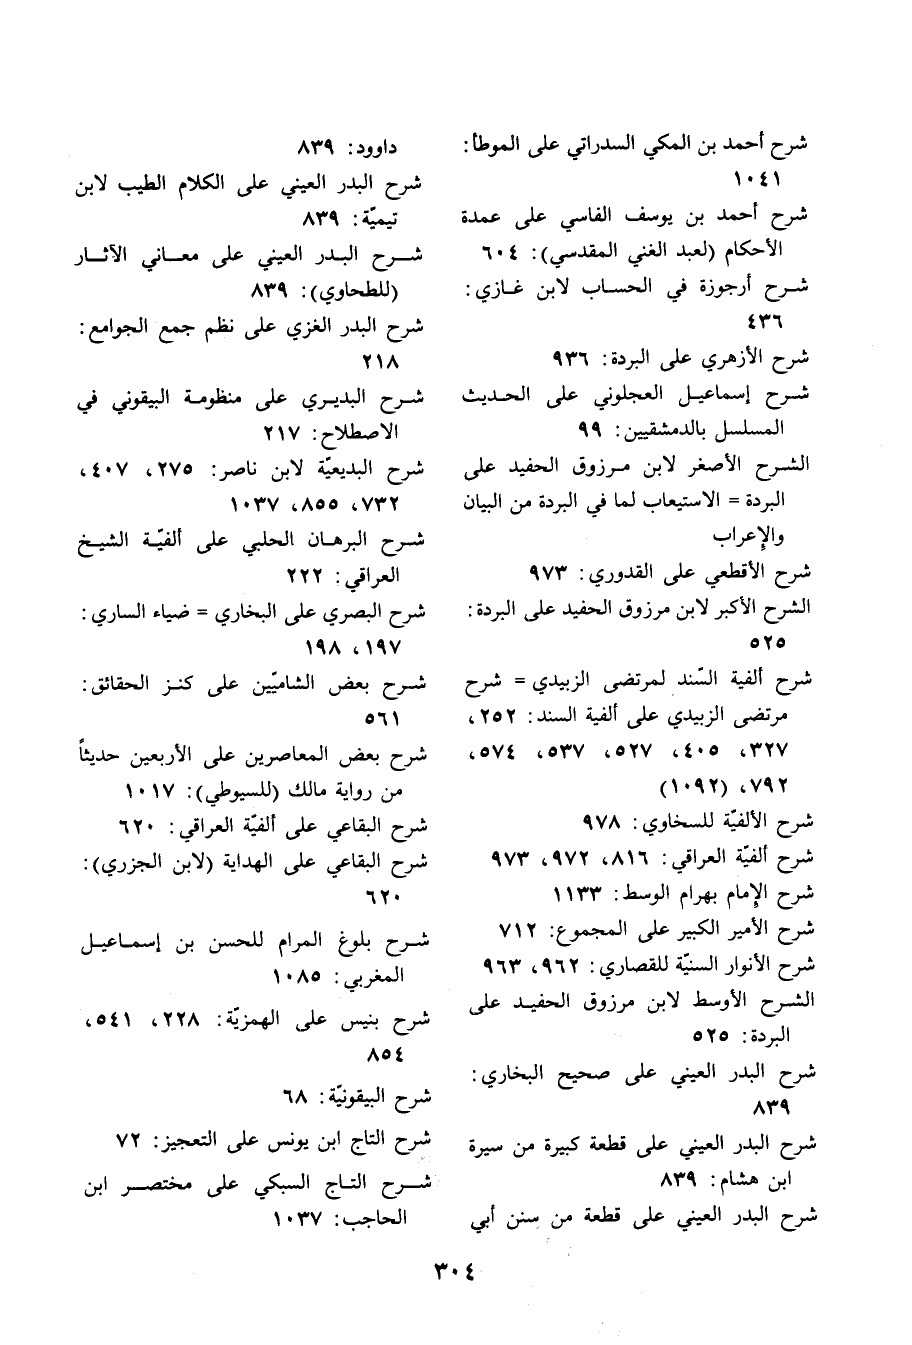 شرح أحمد بن المكي السدراتي على الموطأ:
١٠٤١
شرح أحمد بن يوسف الفاسي على عمدة
الأحكام (لعبد الغني المقدسي): ٦٠٤
شرح أرجوزة في الحساب لابن غازي:
٤٣٦
شرح الأزهري على البردة: ٩٣٦
شرح إسماعيل العجلوني على الحديث
المسلسل بالدمشقيين: ٩٩
الشرح الأصغر لابن مرزوق الحفيد على
البردة = الاستيعاب لما في البردة من البيان
والإعراب
شرح الأقطعي على القدوري: ٩٧٣
الشرح الأكبر لابن مرزوق الحفيد على البردة:
٥٢٥
شرح ألفية السّند لمرتضى الزبيدي = شرح
مرتضى الزبيدي على ألفية السند: ٢٥٢،
٣٢٧، ٤٠٥، ٥٢٧، ٥٣٧، ٥٧٤،
٧٩٢، (١٠٩٢)
شرح الألفيّة للسخاوي: ٩٧٨
شرح ألفيّة العراقي: ٨١٦، ٩٧٢، ٩٧٣
شرح الإمام بهرام الوسط: ١١٣٣
شرح الأمير الكبير على المجموع: ٧١٢
شرح الأنوار السنيّة للقصاري: ٩٦٢، ٩٦٣
الشرح الأوسط لابن مرزوق الحفيد على
البردة: ٥٢٥
شرح البدر العيني على صحيح البخاري:
٨٣٩
شرح البدر العيني على قطعة كبيرة من سيرة
ابن هشام: ٨٣٩
شرح البدر العيني على قطعة من سنن أبي
داوود: ٨٣٩
شرح البدر العيني على الكلام الطيب لابن
تيميّة: ٨٣٩
شرح البدر العيني على معاني الآثار
(للطحاوي): ٨٣٩
شرح البدر الغزي على نظم جمع الجوامع:
٢١٨
شرح البديري على منظومة البيقوني في
الاصطلاح: ٢١٧
شرح البديعيّة لابن ناصر: ٢٧٥، ٤٠٧،
٧٣٢، ٨٥٥، ١٠٣٧
شرح البرهان الحلبي على ألفيّة الشيخ
العراقي: ٢٢٢
شرح البصري على البخاري = ضياء الساري:
١٩٧، ١٩٨
شرح بعض الشاميّين على كنز الحقائق:
٥٦١
شرح بعض المعاصرين على الأربعين حديثاً
من رواية مالك (للسيوطي): ١٠١٧
شرح البقاعي على ألفيّة العراقي: ٦٢٠
شرح البقاعي على الهداية (لابن الجزري):
٦٢٠
شرح بلوغ المرام للحسن بن إسماعيل
المغربي: ١٠٨٥
شرح بنيس على الهمزيّة: ٢٢٨، ٥٤١،
٨٥٤
شرح البيقونيّة: ٦٨
شرح التاج ابن يونس على التعجيز: ٧٢
شرح التاج السبكي على مختصر ابن
الحاجب: ١٠٣٧
٣٠٤